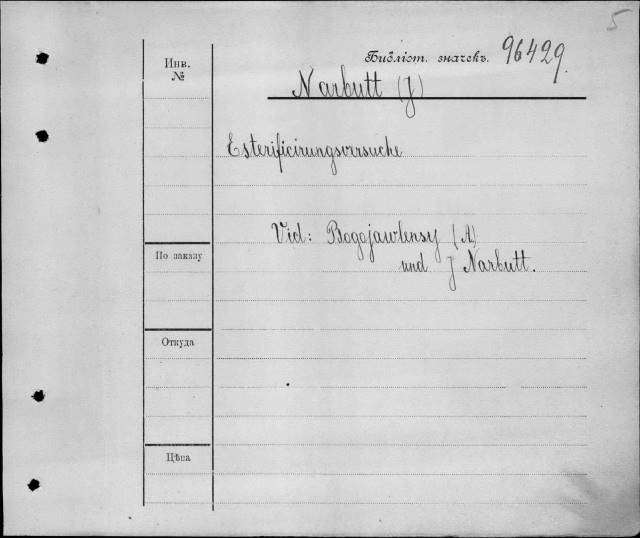 5
Библіот. значекъ. 96429
Инв.
№
Narbutt (J)
Esterificirungsversuche
Vid: Bogojawlensy (A)
und J Narbutt.
По заказу
Откуда
Цѣна